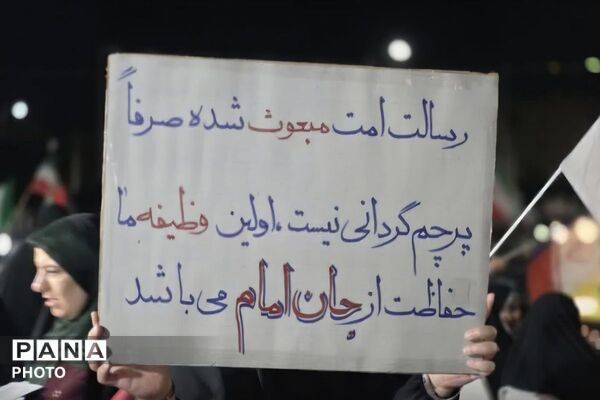 رسالت امت مبعوث شده صرفاً
پرچم گردانی نیست، اولین وظیفه ما
حفاظت از جان امام می باشد
PANA
PHOTO